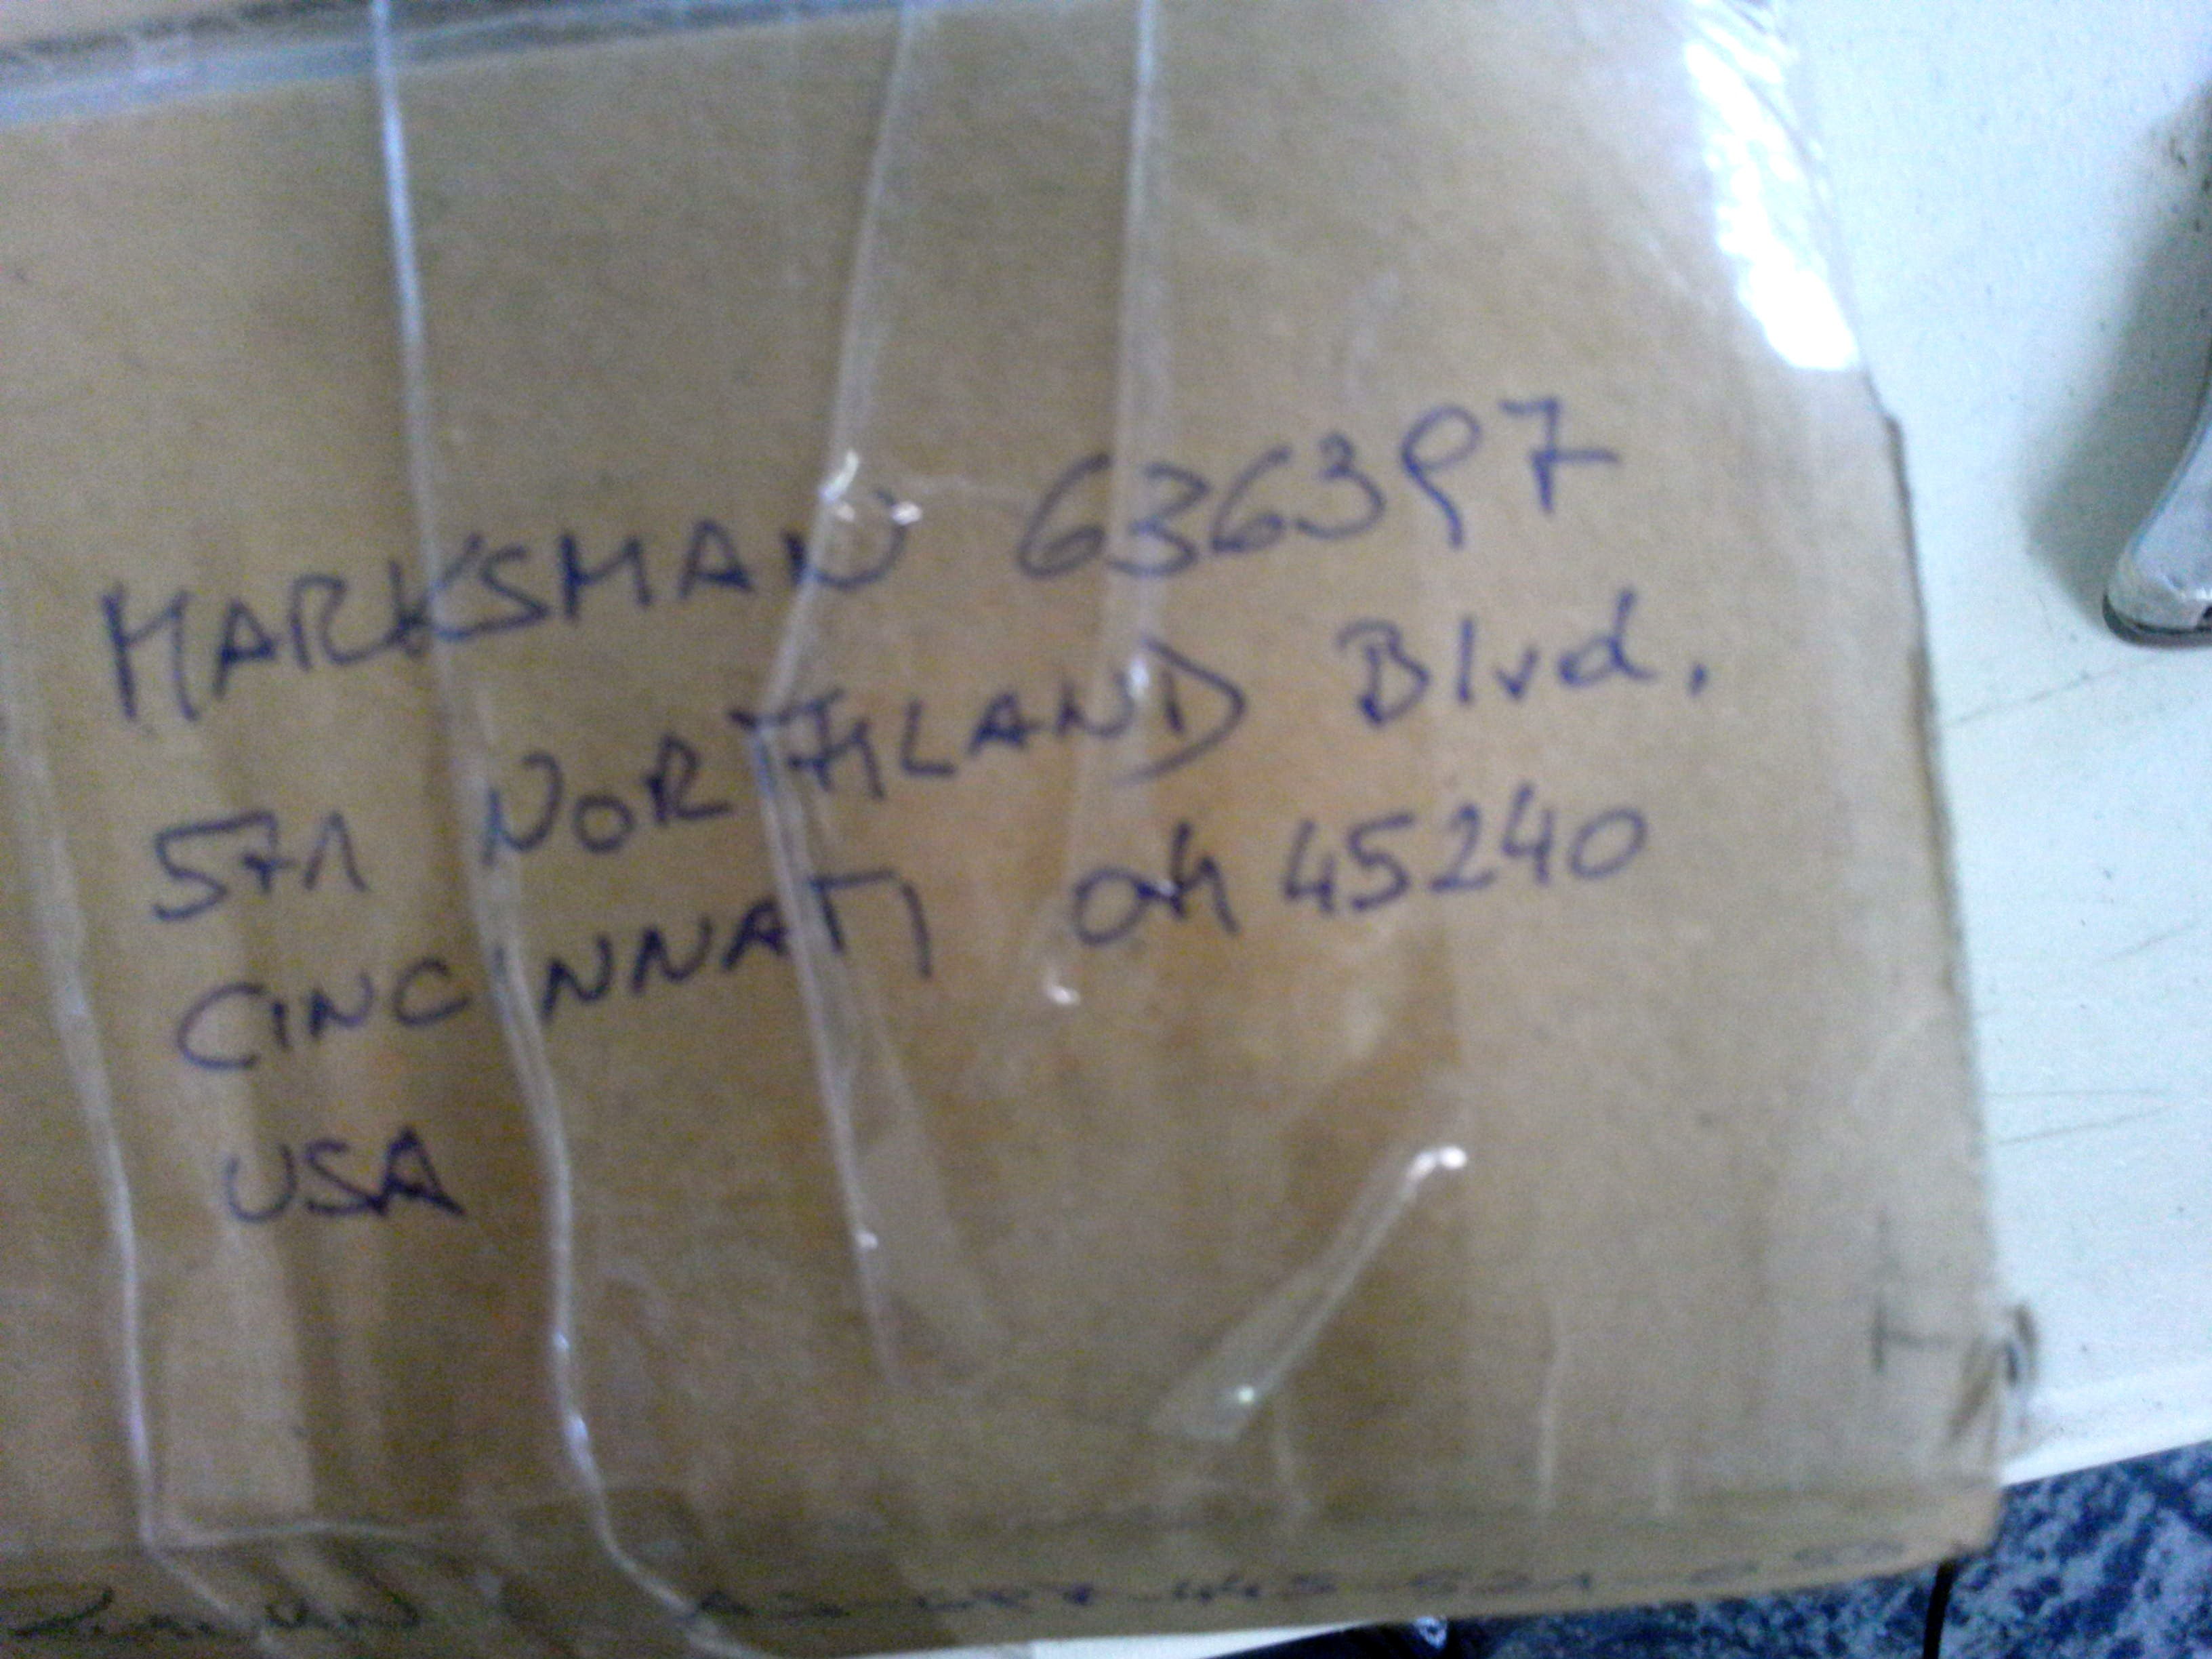 MARKSMAN 636397
571 NORTHLAND Blvd.
CINCINNATI OH 45240
USA